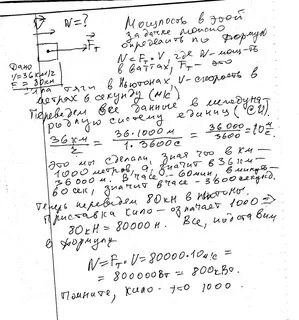 N=?
Мощность в этой
задаче можно
определить по формуле
Дано
V=36км/ч
F=80кН
Fт
N=Fт·V, где N-мощ-ть
в ваттах, Fт - это
сила тяги в Ньютонах V-скорость в
метрах в секунду (м/с)
Переведём все данные в междунар
родную систему единиц (СИ)
36км/ч = 36·1000м/1·3600с = 36000/3600 = 10м/с.
Это мы сделали, зная что в км
1000 метров, а, значит в 36км-
36000м. В часе - 60мин, в минуте
60 сек, значит в часе - 3600секунд.
Теперь переведём 80кН в ньютоны.
Приставка кило- означает 1000 ⇒
80кН = 80000Н. Все, подставим
в формулу
N=Fт·V=80000·10м/с=
=800000Вт=800кВт.
Помните, кило- это 1000.